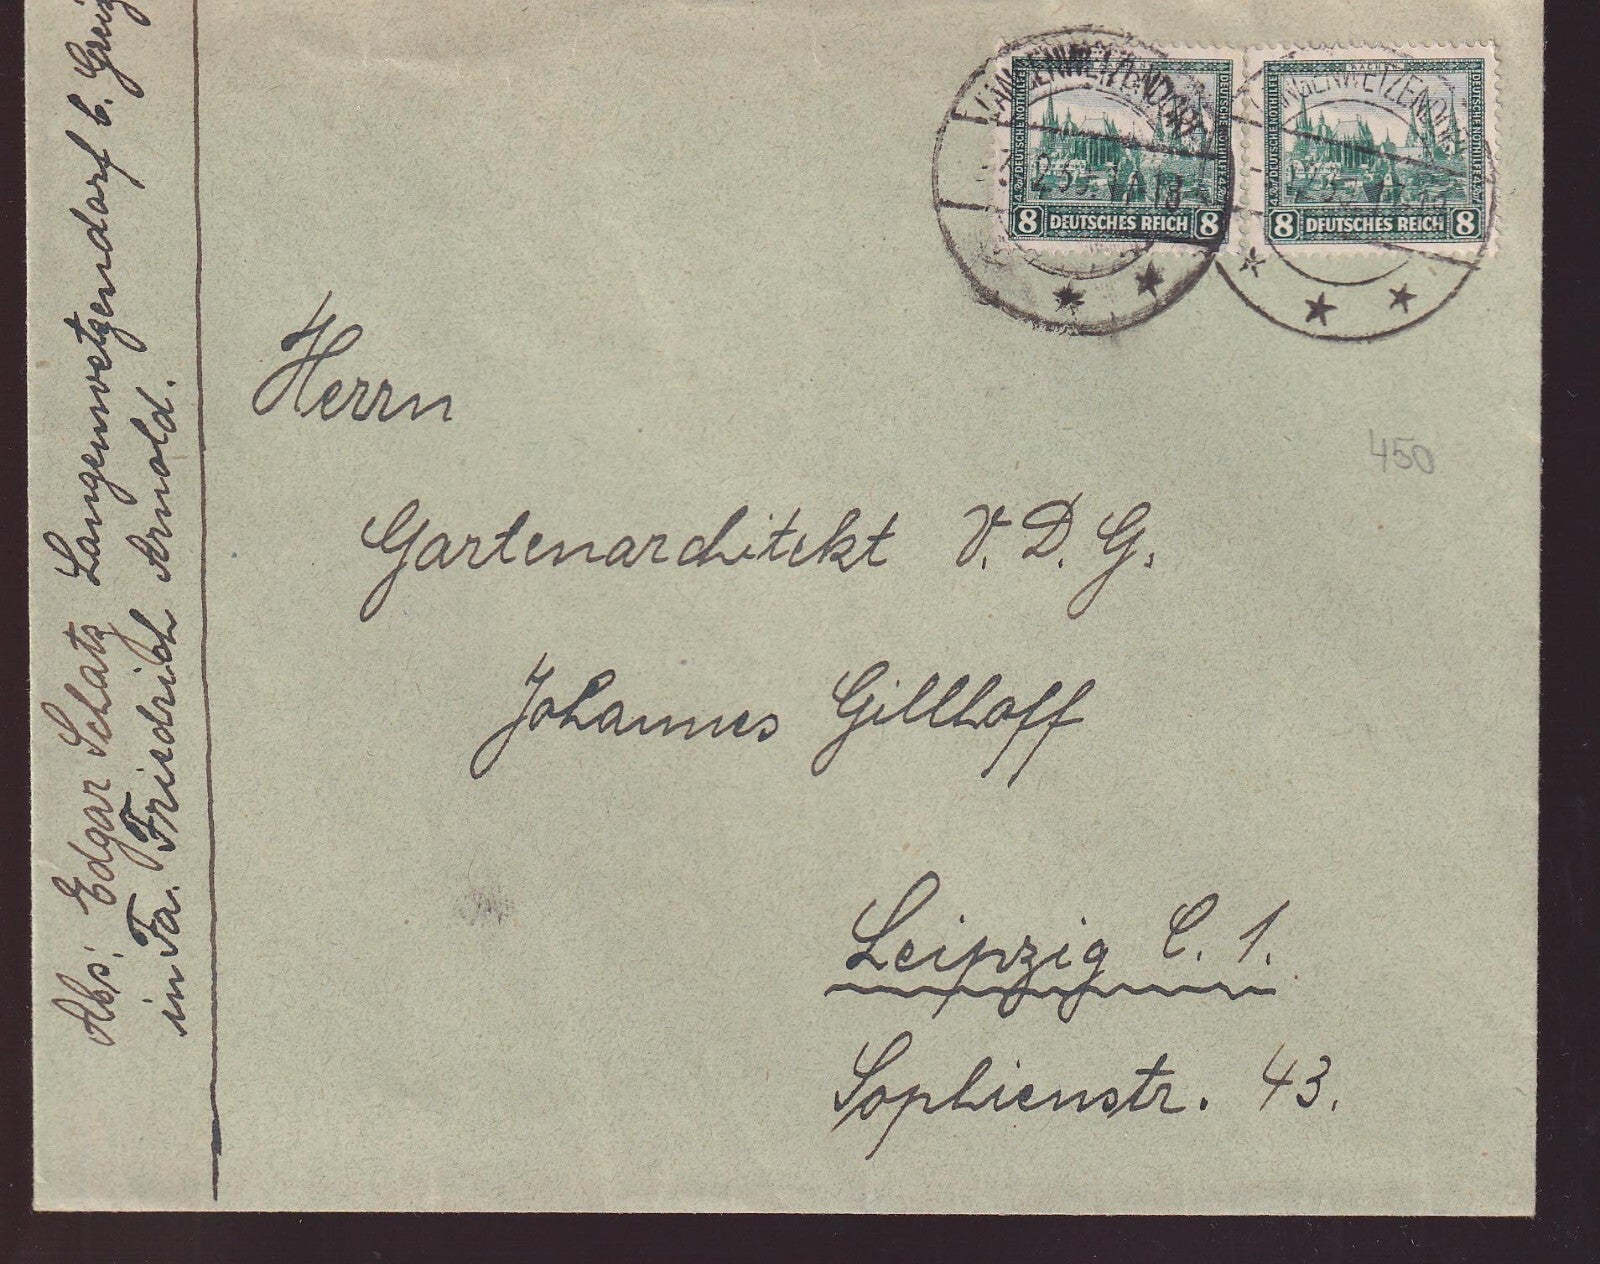 Abs: Edgar Schatz Langenwetzendorf b. Greiz
in Fa. Friedrich Arnold.
LANGENWETZENDORF
LANGENWETZENDORF
DEUTSCHE NOTHILFE
DEUTSCHE NOTHILFE
8 DEUTSCHES REICH 8
8 DEUTSCHES REICH 8
Herrn
450
Gartenarchitekt V. D. G.
Johannes Gillhoff
Leipzig C. 1.
Sophienstr. 43.